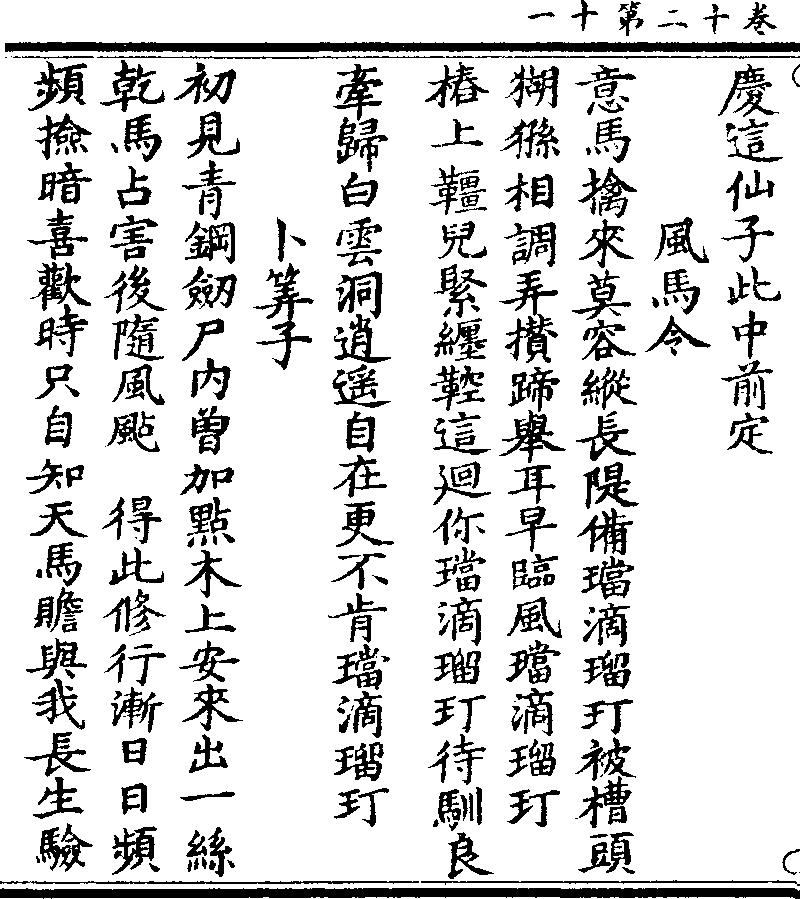 卷十二第十一
慶這仙子此中前定
風馬令
意馬擒來莫容縱長隄備璫滴瑠玎被槽頭
猢猻相調弄攢蹄舉耳早臨風璫滴瑠玎
樁上韁兒緊纏鞚這廻你璫滴瑠玎待馴良
牽歸白雲洞逍遥自在更不肯璫滴瑠玎
卜筭子
初見青鋼劒尸内曾加點木上安來出一絲
乾馬占害後隨風颭 得此修行漸日日頻
頻撿暗喜歡時只自知天馬贍與我長生驗